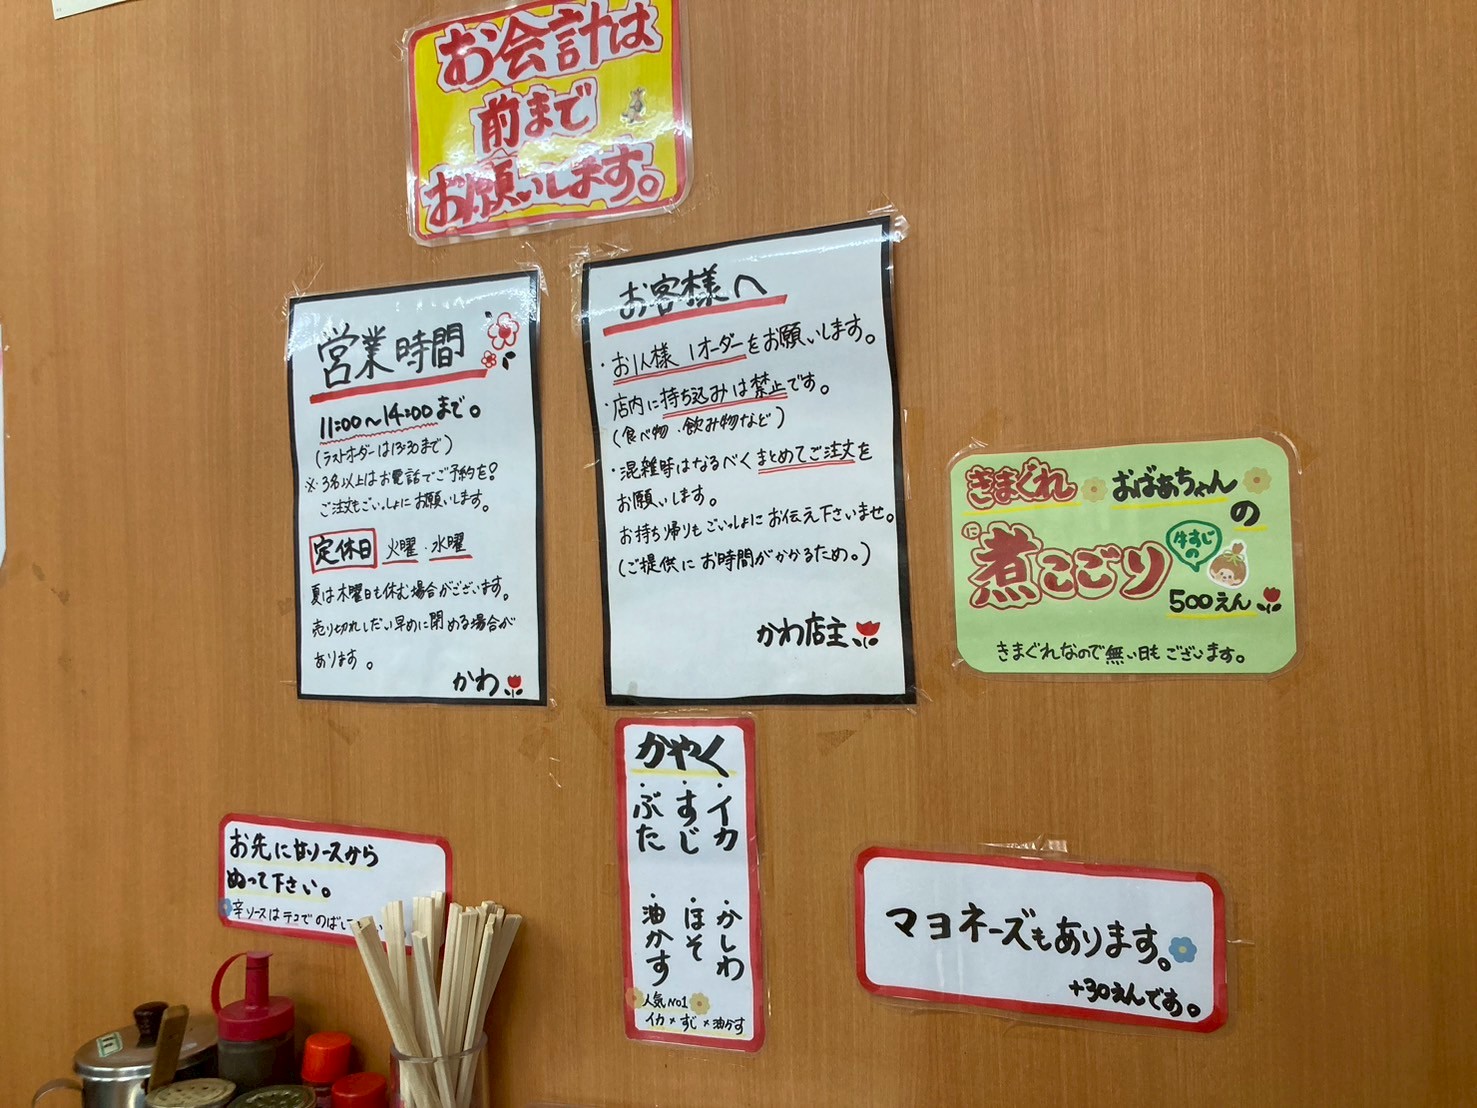 お会計は
前まで
お願いします。
営業時間
11:00〜14:00まで。
(ラストオーダーは13:30まで)
※3名以上はお電話でご予約を!
ご注文もごいっしょにお願いします。
定休日 火曜・水曜
夏は木曜日も休む場合がございます。
売り切れしだい早めに閉める場合が
あります。
かわ
お客様へ
・お1人様 1オーダーをお願いします。
・店内に持ち込みは禁止です。
(食べ物・飲み物など)
・混雑時はなるべくまとめてご注文を
お願いします。
お持ち帰りもごいっしょにお伝え下さいませ。
(ご提供にお時間がかかるため。)
かわ店主
きまぐれ おばあちゃんの
煮こごり
に
牛すじの
500えん
きまぐれなので無い日もございます。
かやく
・イカ
・すじ
・ぶた
・かしわ
・ほそ
・油かす
人気No1
イカ×すじ×油かす
お先に甘ソースから
ぬって下さい。
辛ソースはテコでのばし
マヨネーズもあります。
+30えんです。